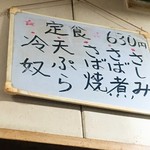 定食 630円
さしみ
さば煮
さば焼
天ぷら
冷奴